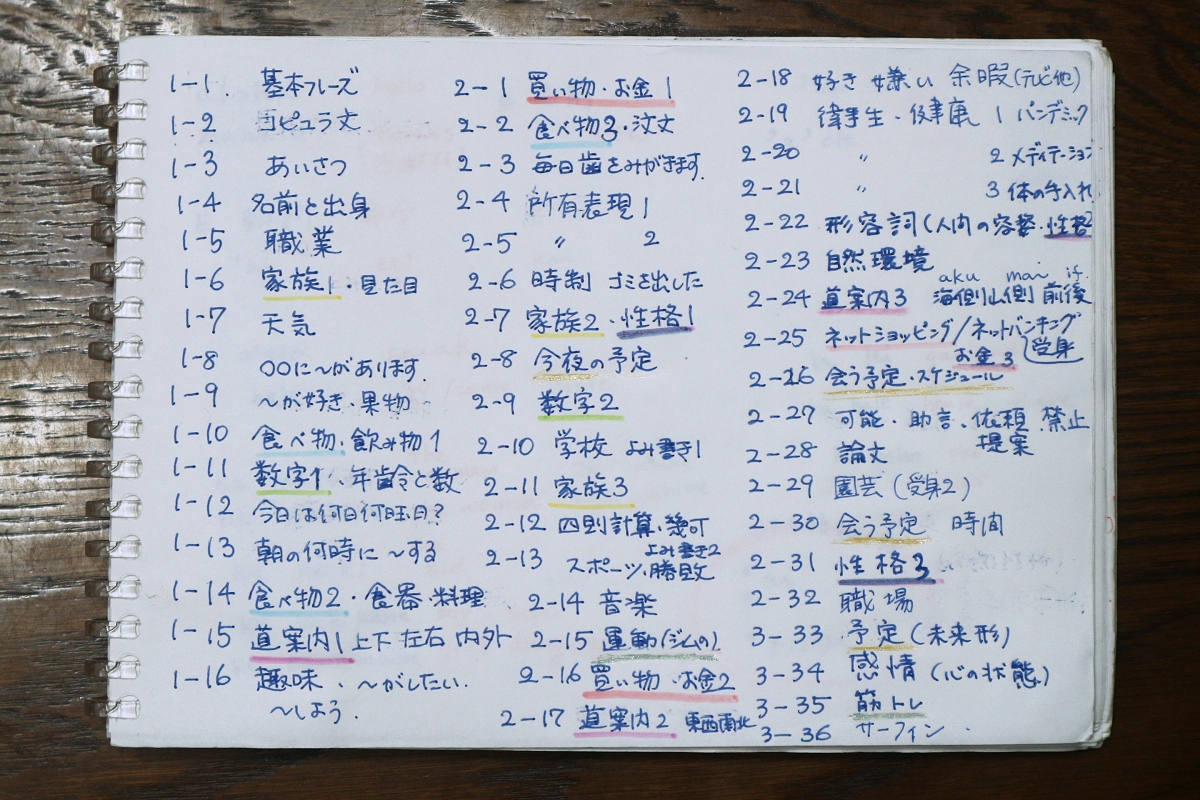 1-1 基本フレーズ
1-2 コピュラ文
1-3 あいさつ
1-4 名前と出身
1-5 職業
1-6 家族1・見た目
1-7 天気
1-8 〇〇に〜があります
1-9 〜が好き・果物
1-10 食べ物・飲み物1
1-11 数字1、年齢と数
1-12 今日は何日何曜日?
1-13 朝の何時に〜する
1-14 食べ物2・食器・料理
1-15 道案内1 上下 左右 内外
1-16 趣味、〜がしたい.
〜しよう.
2-1 買い物・お金1
2-2 食べ物3・注文
2-3 毎日歯をみがきます.
2-4 所有表現1
2-5 〃 2
2-6 時制 ゴミを出した
2-7 家族2・性格1
2-8 今夜の予定
2-9 数字2
2-10 学校 よみ書き1
2-11 家族3
2-12 四則計算・幾何
よみ書き2
2-13 スポーツ・勝敗
2-14 音楽
2-15 運動(ジムの)
2-16 買い物・お金2
2-17 道案内2 東西南北
2-18 好き 嫌い 余暇(テレビ他)
2-19 衛生・健康 1 パンデミック
2-20 〃 2 メディテーション
2-21 〃 3 体の手入れ
2-22 形容詞(人間の容姿・性格2
2-23 自然環境
aku mai if.
2-24 道案内3 海側山側 前後
2-25 ネットショッピング/ネットバンキング
お金3 受身
2-26 会う予定・スケジュール
2-27 可能・助言、依頼 禁止
提案
2-28 論文
2-29 園芸(受身2)
2-30 会う予定 時間
2-31 性格3
2-32 職場
3-33 予定(未来形)
3-34 感情(心の状態)
3-35 筋トレ
3-36 サーフィン